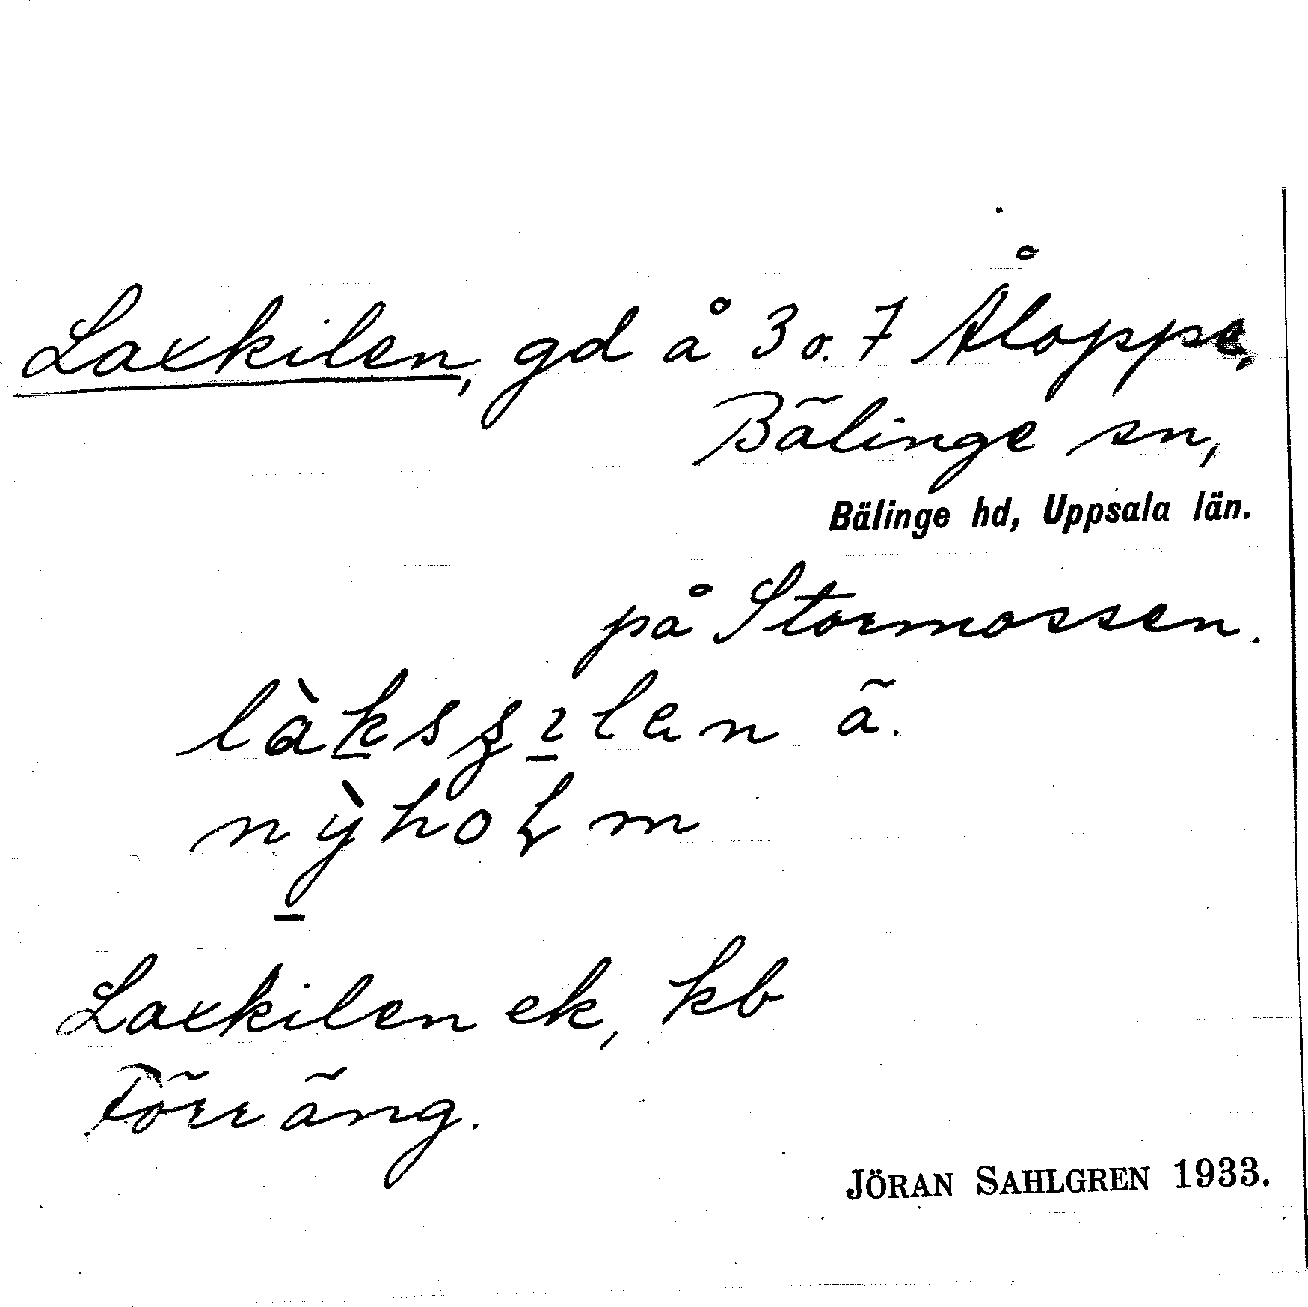 Laxkilen, gd å 3 o. 7 Åloppe,
Bälinge sn,
Bälinge hd, Uppsala län.
på Stormossen.
làksʂɪlen ä.
nỳhoɭm
Laxkilen ek, kb
Förr äng.
JÖRAN SAHLGREN 1933.